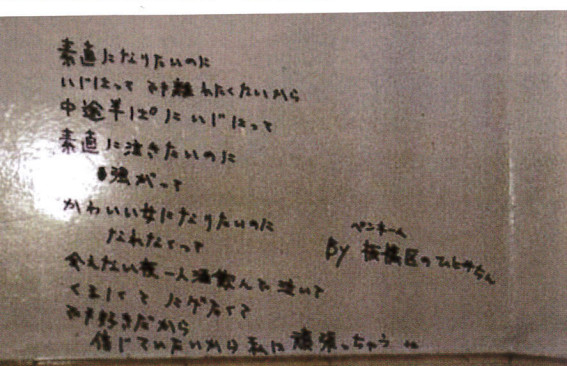 素直になりたいのに
いじはって でも離れたくないから
中途半ぱにいじはって
素直に泣きたいのに
強がって
かわいい女になりたいのに
なれなくって
会えない夜 一人酒飲んで 泣いて
くるしくて にげたくて
でも好きだから
信じていたいから 私は 頑張っちゃう
ペンネーム
By 板橋区のひとみちゃん